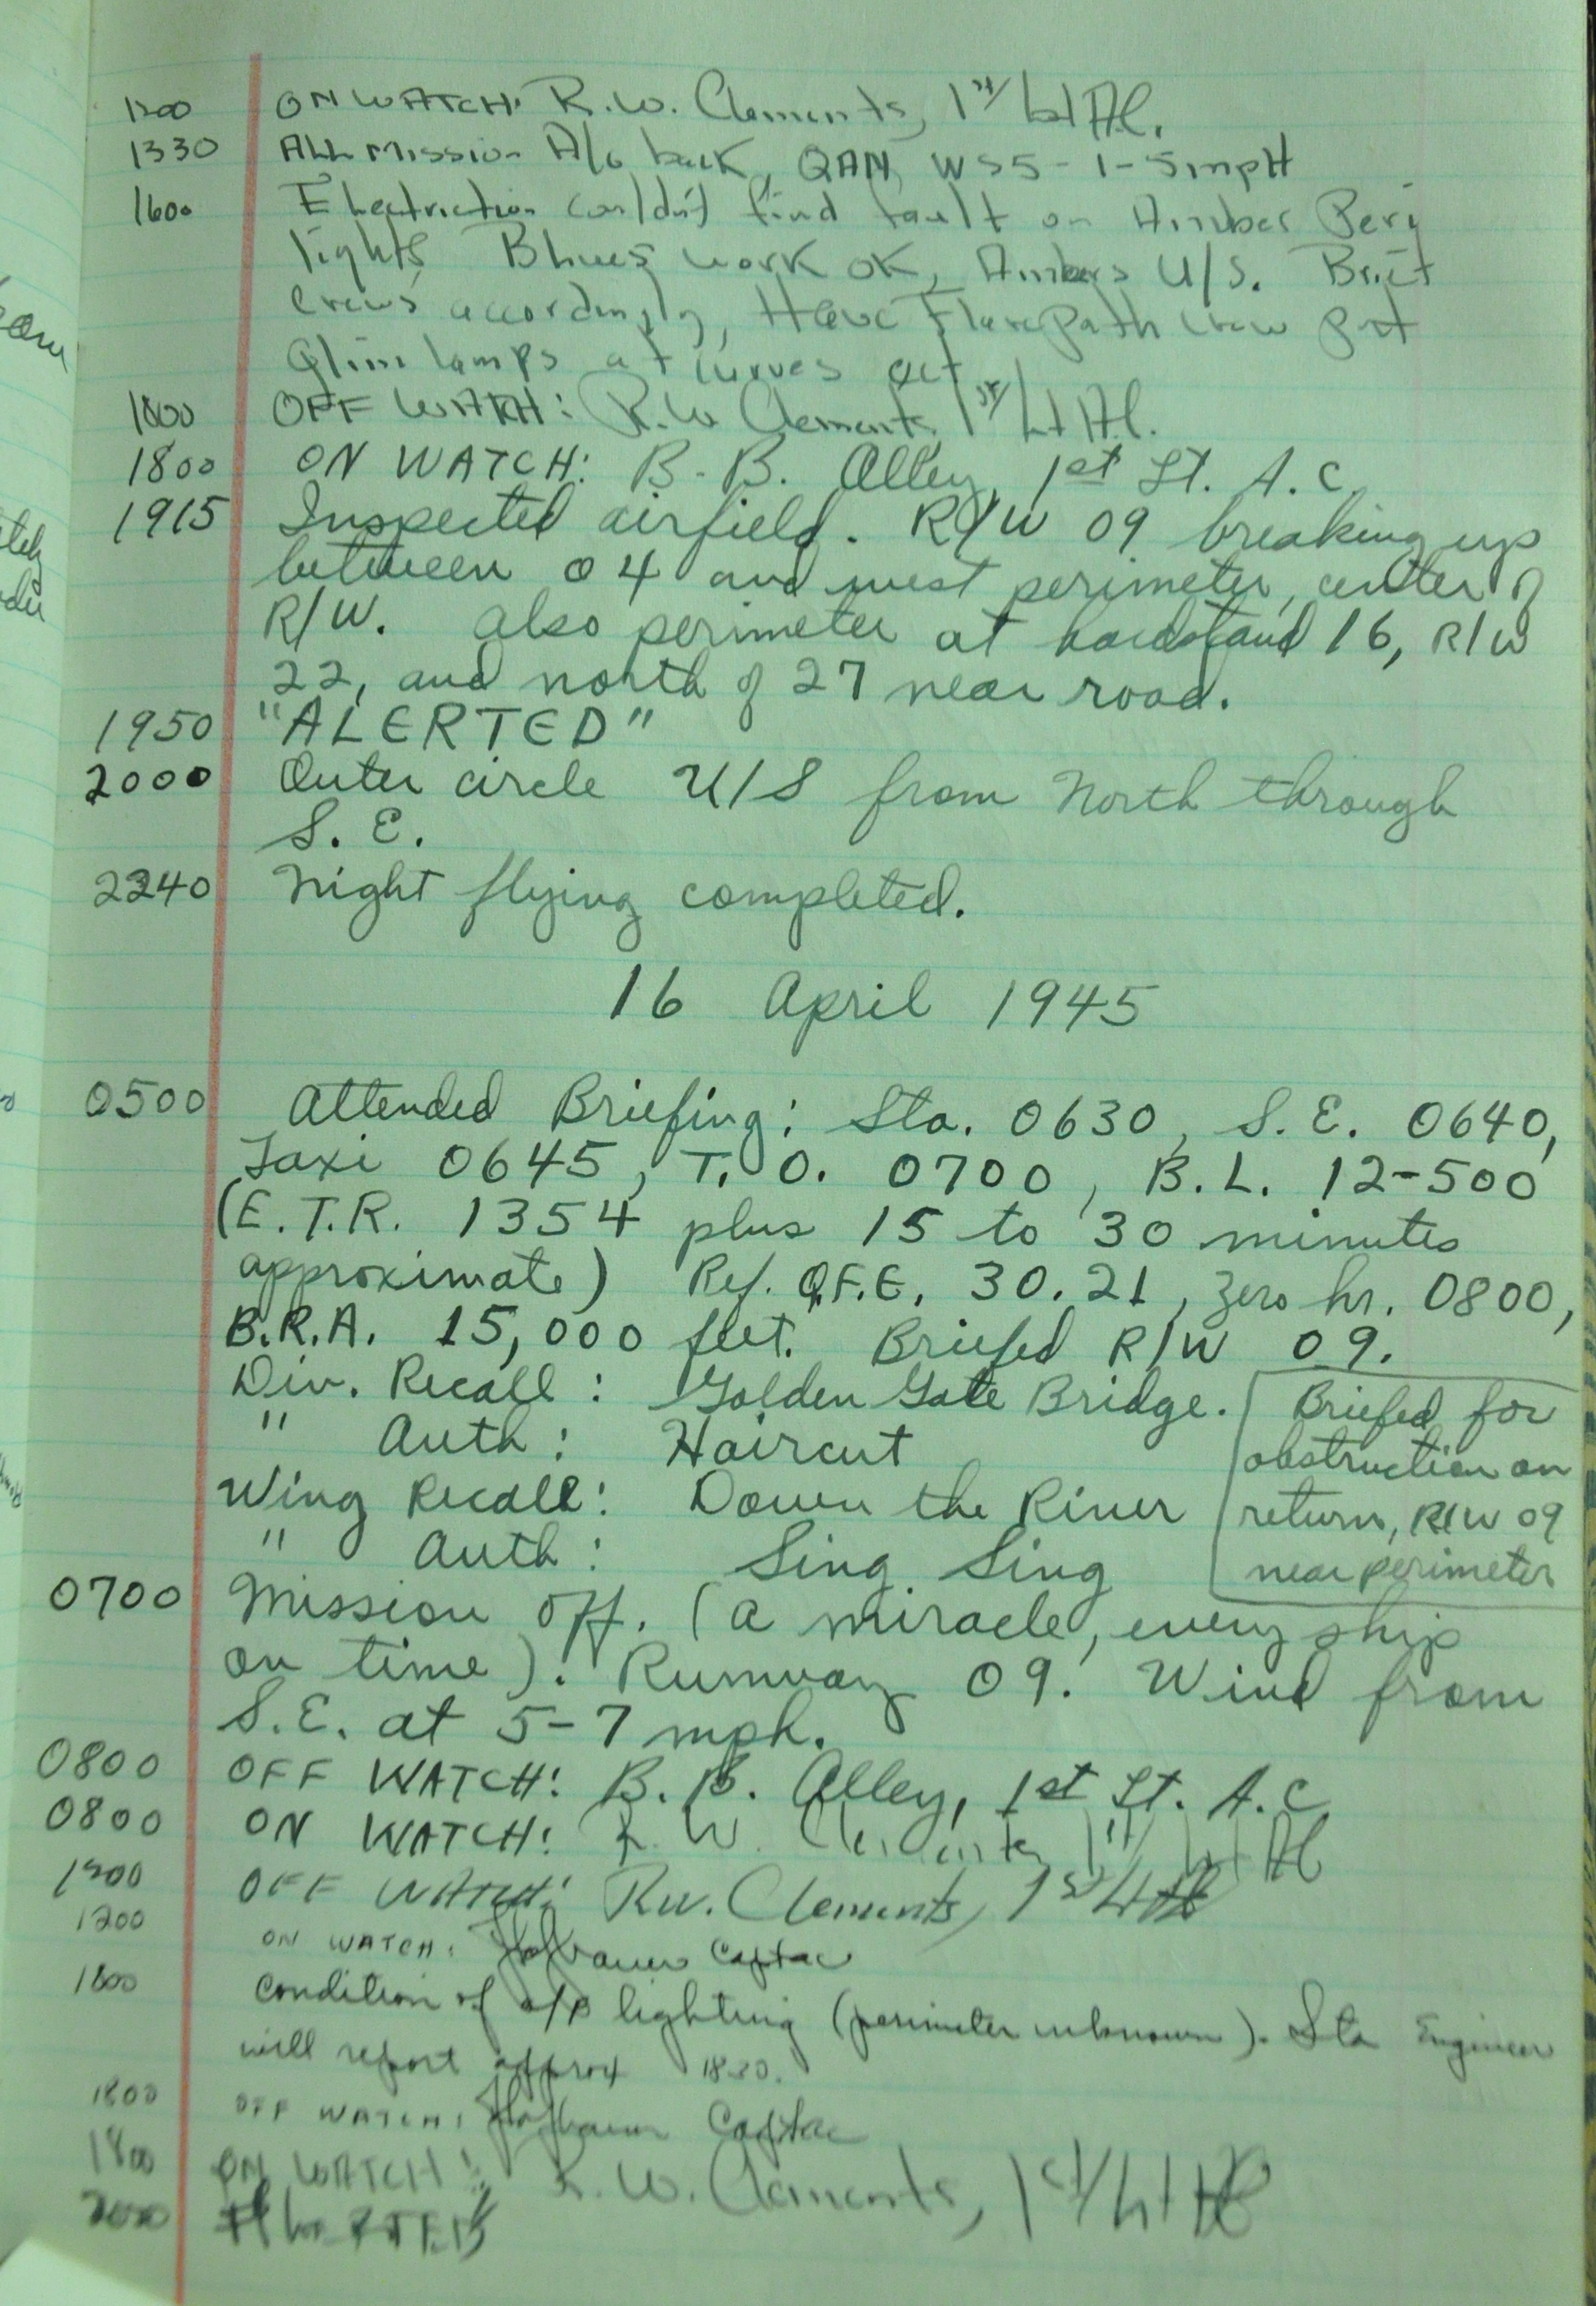 1200 ON WATCH: R.W. Clements, 1st/Lt AC.
1330 ALL Mission A/c back, QAN, WSS-1-5mph
1600 Electrician couldn't find fault on Amber Pery
lights, Blues work OK, Ambers U/S. Brief
crews accordingly, Have FlarePath crew put
Glim lamps at curves
1800 OFF WATCH: R.W. Clements 1st/Lt AC.
1800 ON WATCH: B.B. Alley, 1st Lt. A.C.
1915 Inspected airfield. R/W 09 breaking up
between 04 and west perimeter, center of
R/W. also perimeter at hardstand 16, R/W
22, and north of 27 near road.
1950 "ALERTED"
2000 Outer circle U/S from North through
S.E.
2240 Night flying completed.
16 April 1945
0500 Attended Briefing: Sta. 0630, S.E. 0640,
Taxi 0645, T.O. 0700, B.L. 12-500
(E.T.R. 1354 plus 15 to 30 minutes
approximate) Ref. Q.F.E. 30.21, Zero hr. 0800,
B.R.A. 15,000 feet. Briefed R/W 09.
Div. Recall: Golden Gate Bridge.
" Auth: Haircut
Wing Recall: Down the River
" Auth: Sing Sing
Briefed for
obstruction on
return, R/W 09
near perimeter
0700 Mission off. (a miracle, every ship
on time). Runway 09. Wind from
S.E. at 5-7 mph.
0800 OFF WATCH: B.B. Alley, 1st Lt. A.C.
0800 ON WATCH: R.W. Clements 1st/Lt AC
1200 OFF WATCH: R.W. Clements, 1st/Lt AC
1200 ON WATCH: Capt ac
1800 Condition of a/D lighting (perimeter unknown). Sta Engineer
will report approx 1830.
1800 OFF WATCH: Capt ac
1800 ON WATCH: R.W. Clements, 1st/Lt AC
2000 ALERTED